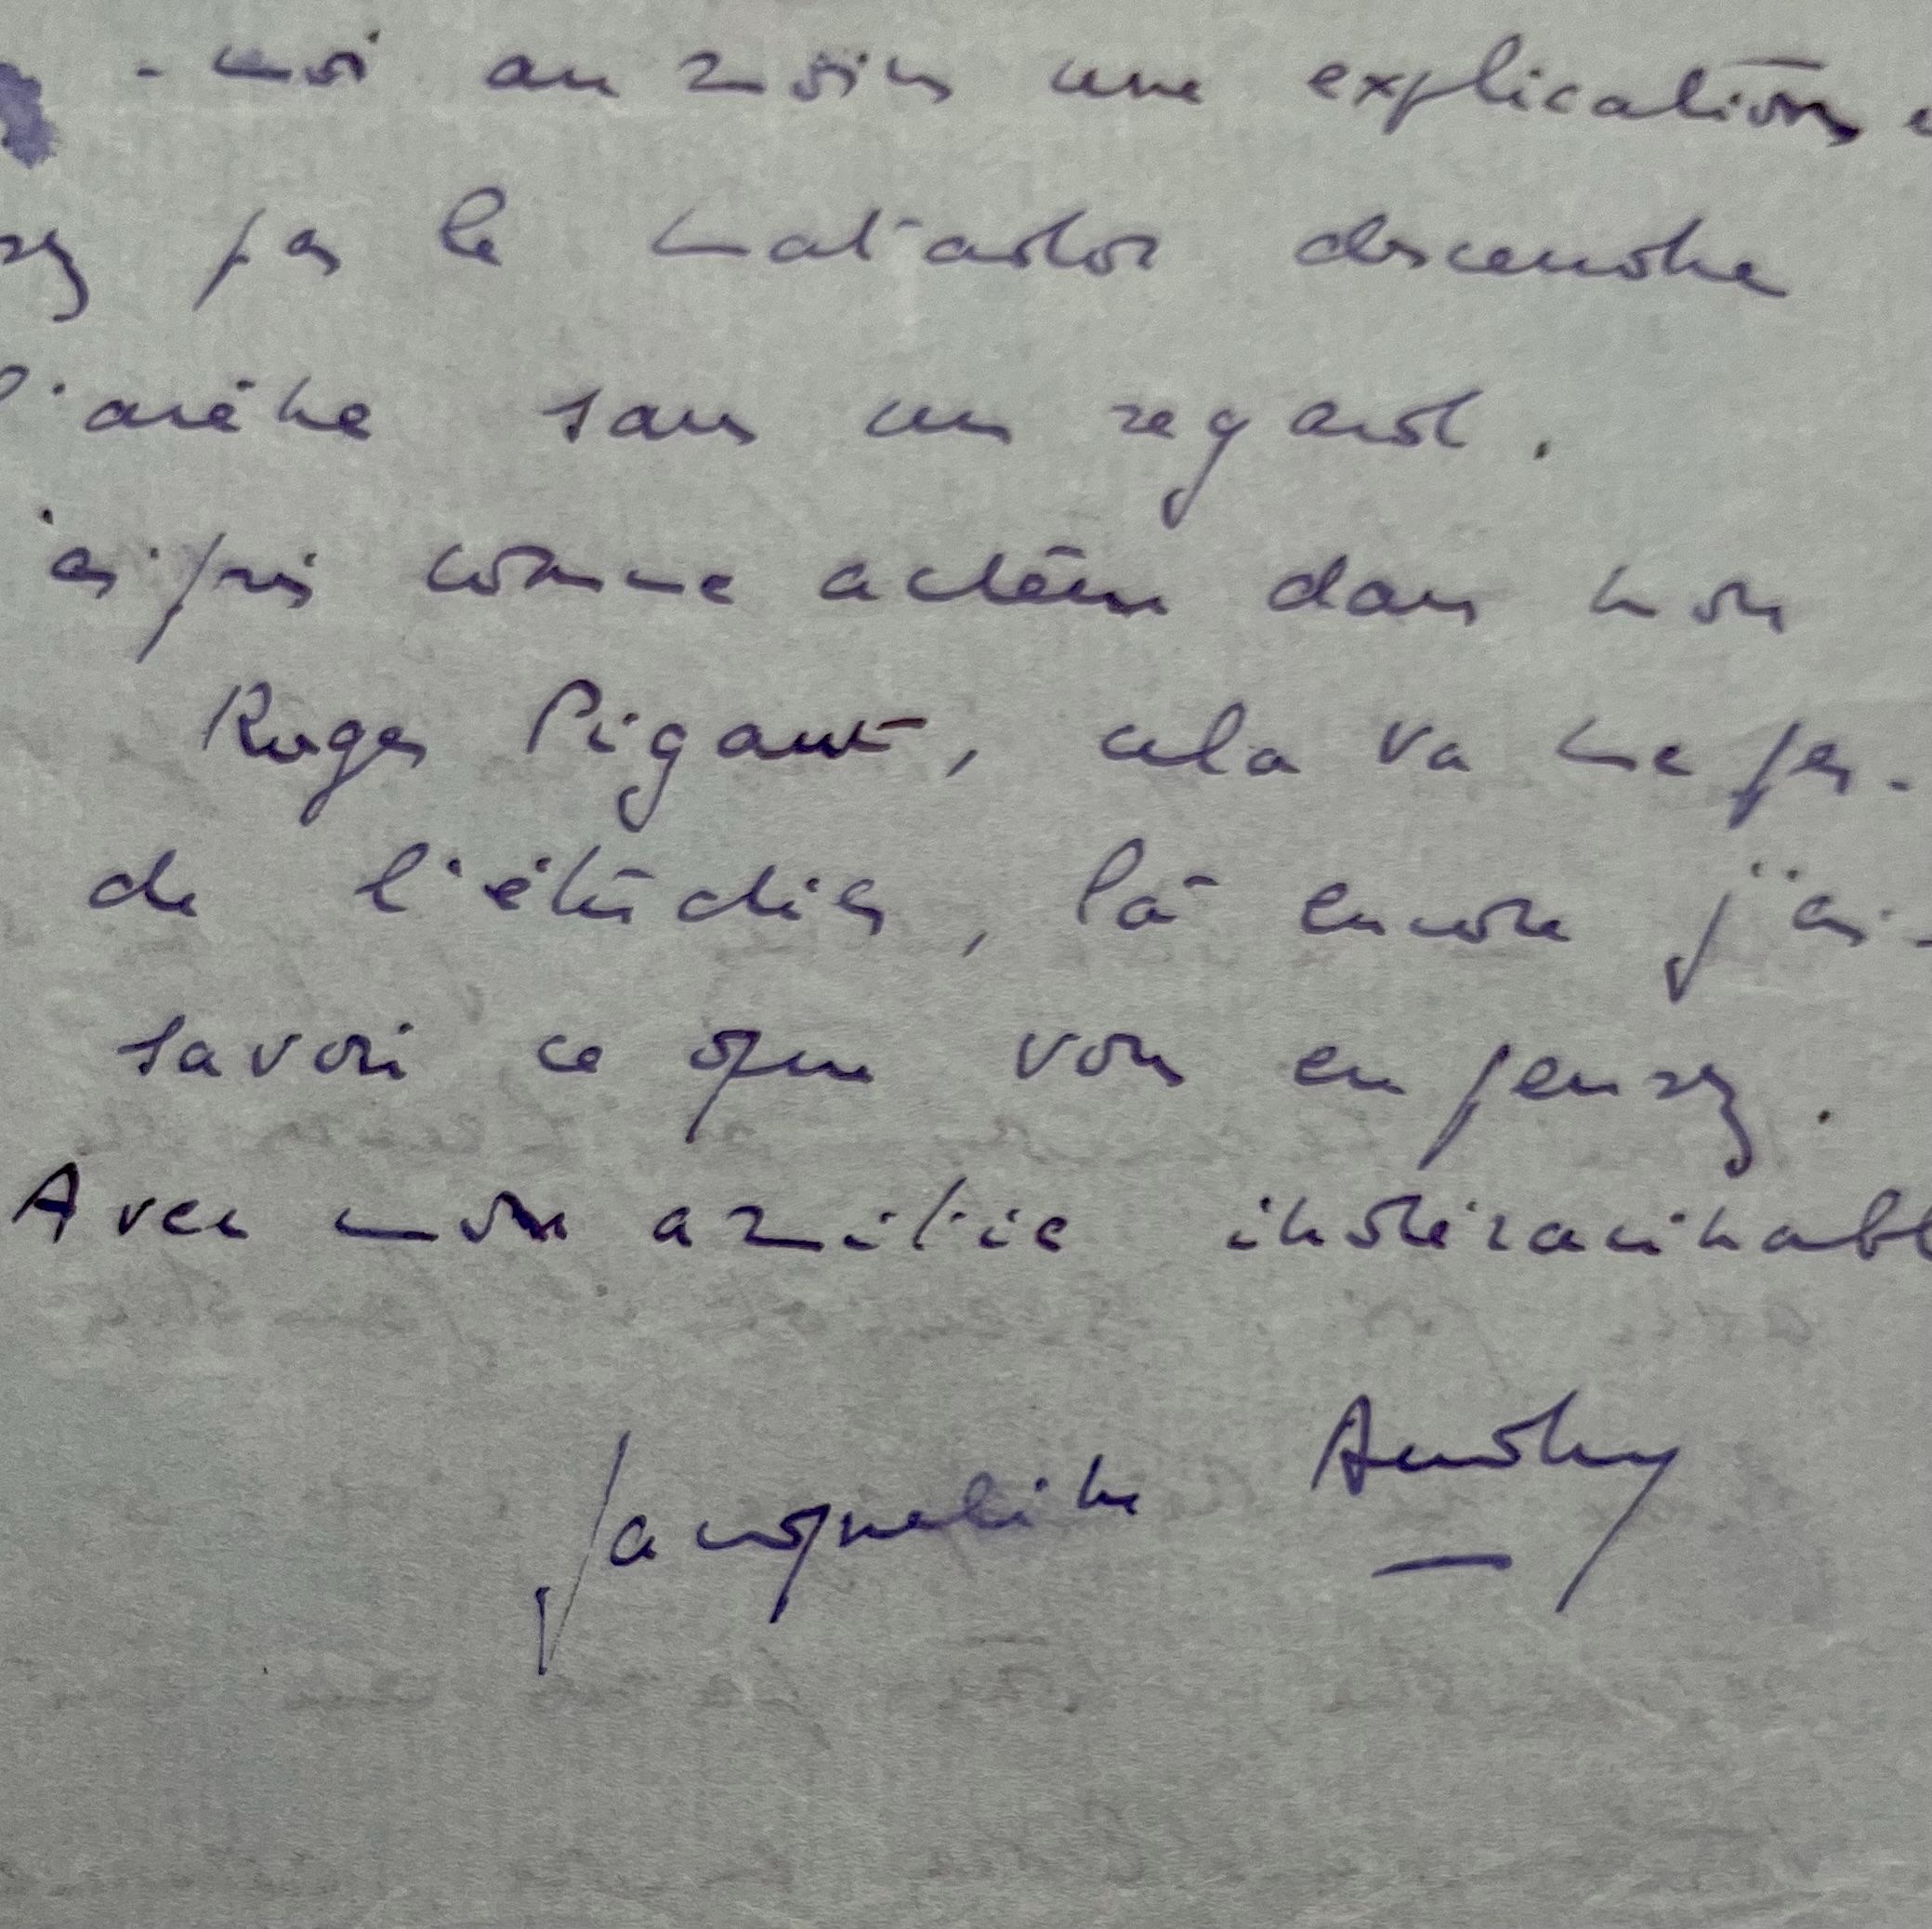 -moi au moins une explication
pas le matador descendre
l'arène sans un regard.
'ai pris comme acteur dans mon
Roger Pigaut, cela va me per-
de l'étudier, là encore j'ai-
savoir ce que vous en pensez.
Avec mon amitié indéracinabl
Jacqueline Audry